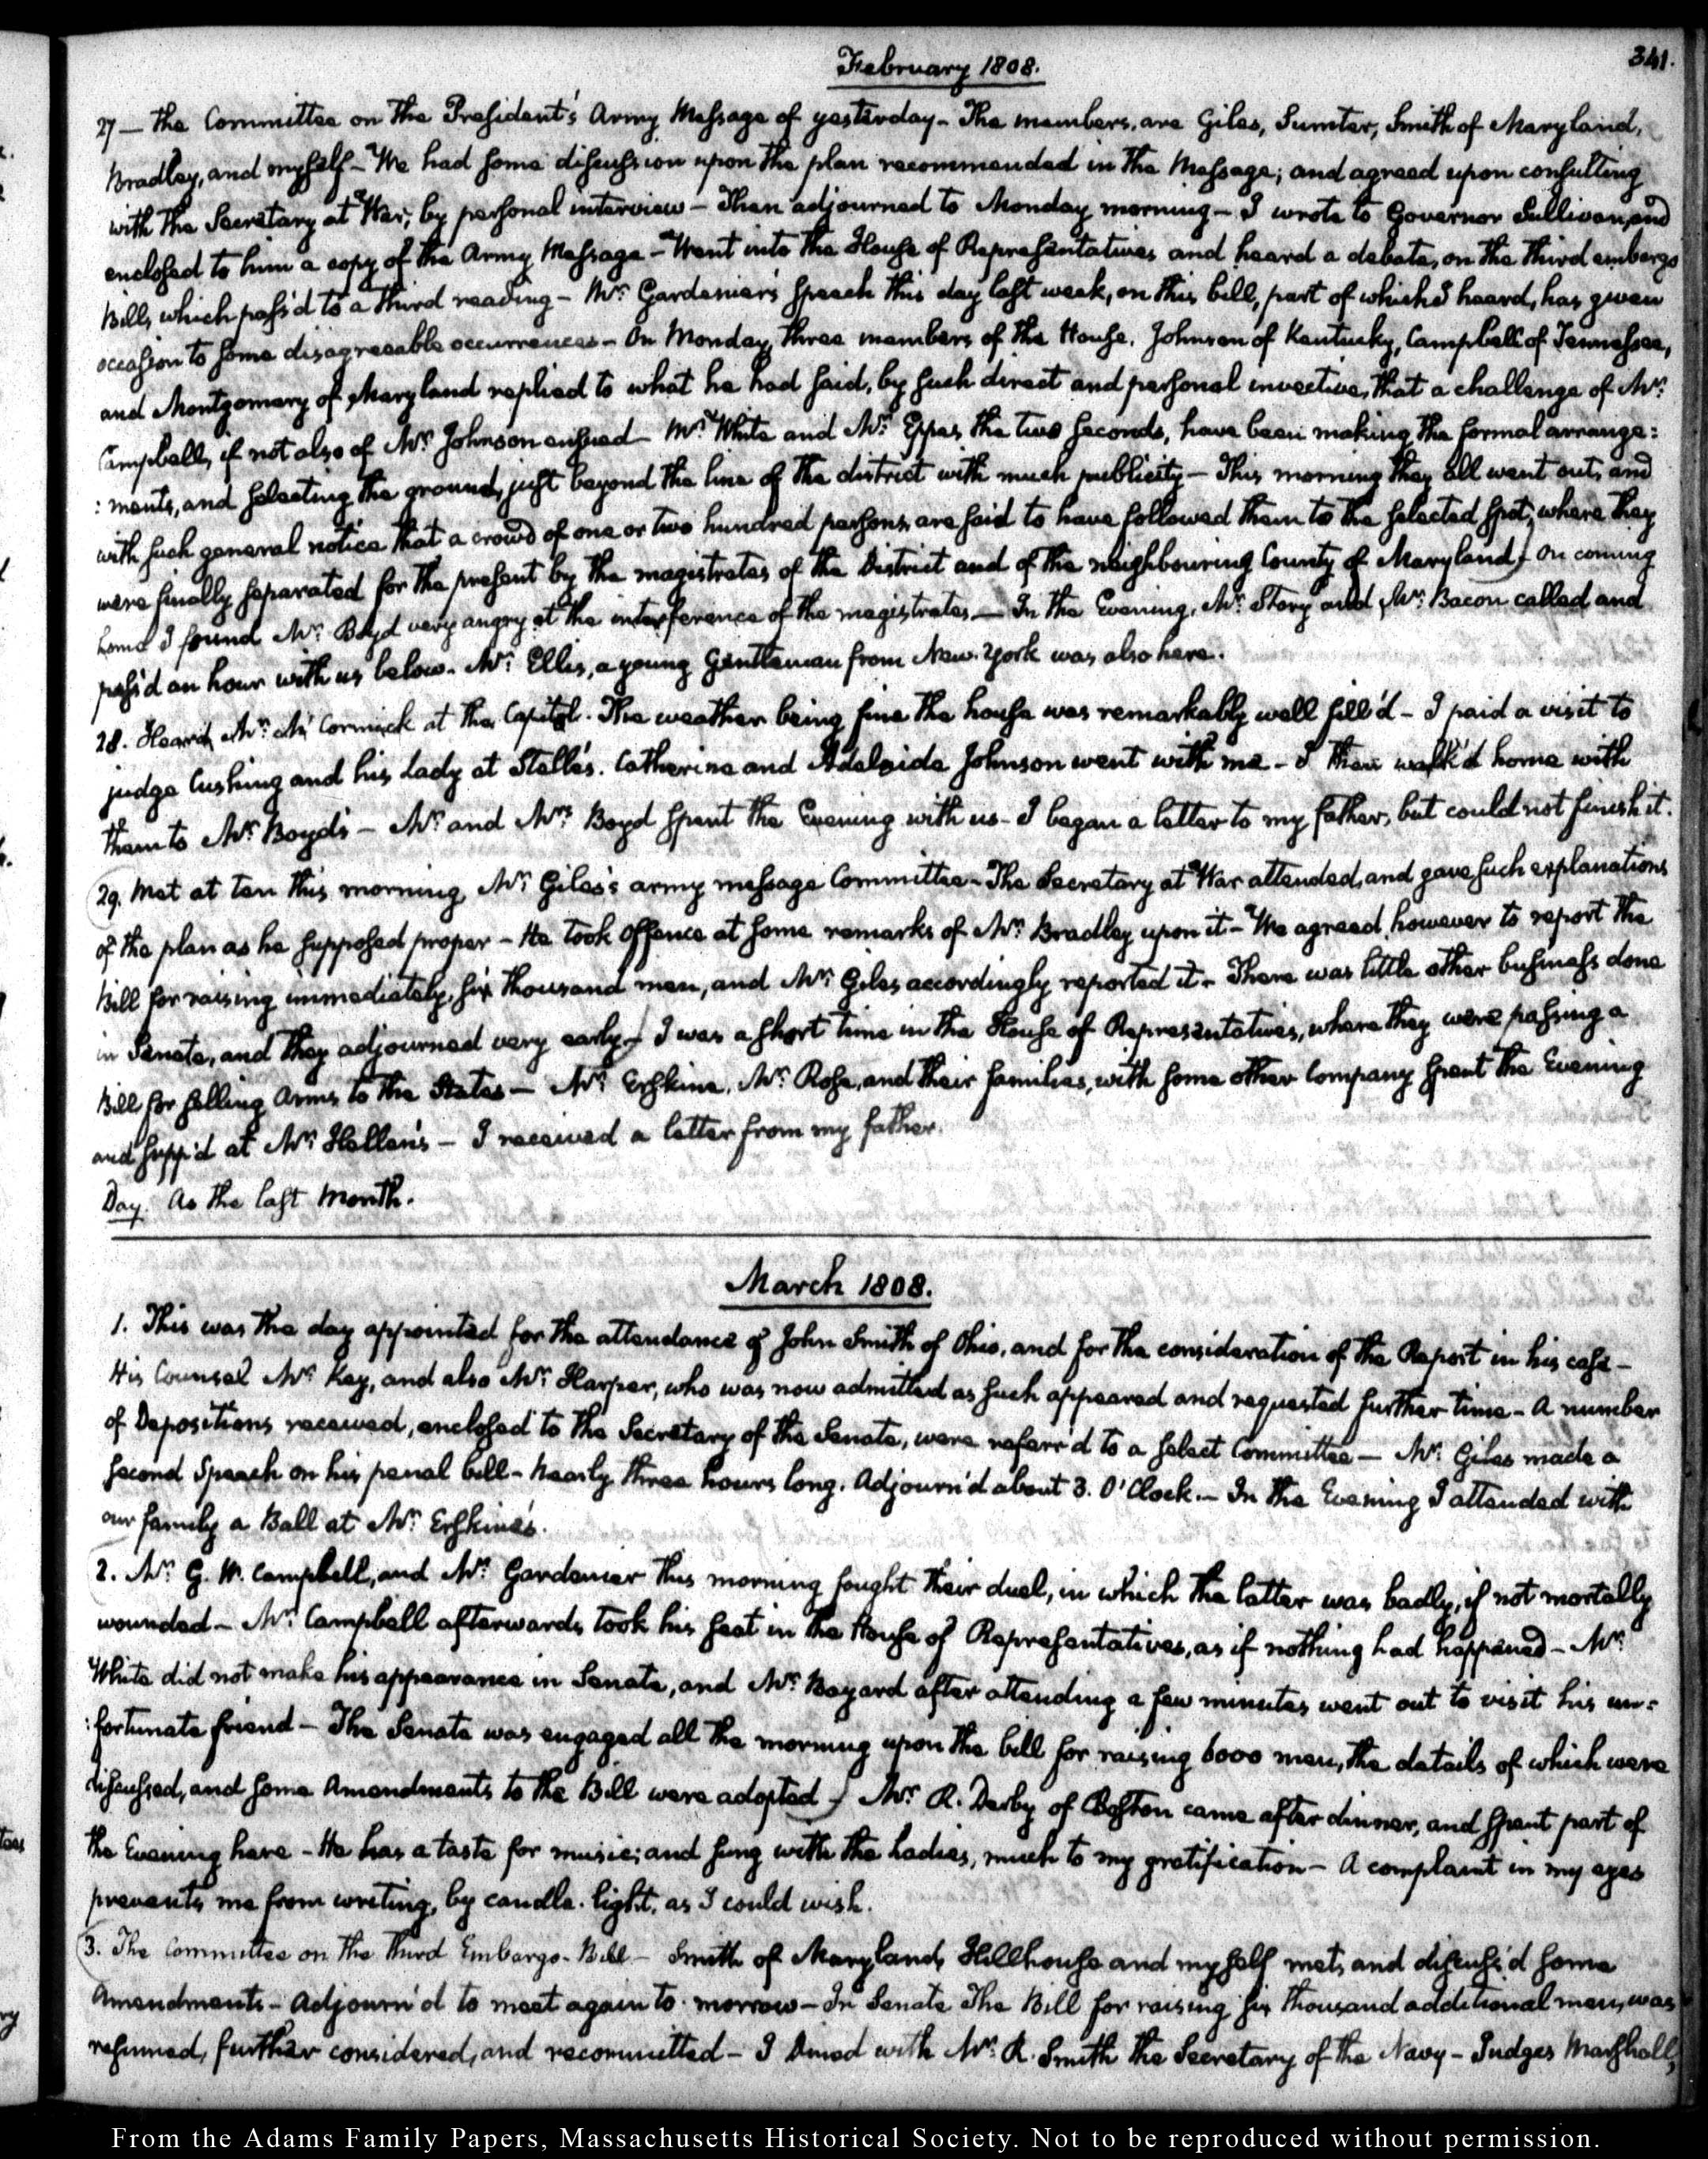 February 1808.
341.
27 — The Committee on the President's Army Message of yesterday - The members, are Giles, Sumter, Smith of Maryland,
Bradley, and myself - We had some discussion upon the plan recommended in the Message; and agreed upon consulting
with the Secretary at War, by personal interview - Then adjourned to Monday morning - I wrote to Governor Sullivan, and
enclosed to him a copy of the Army Message - Went into the House of Representatives and heard a debate, on the third embargo
Bill, which pass'd to a third reading - Mr. Gardenier's speech this day last week, on this bill, part of which I heard, has given
occasion to some disagreeable occurrences - On Monday, three members of the House, Johnson of Kentucky, Campbell of Tennessee,
and Montgomery of Maryland replied to what he had said, by such direct and personal invective, that a challenge of Mr.
Campbell, if not also of Mr. Johnson ensued - Mr. White and Mr. Eppes the two seconds, have been making the formal arrange:
: ments, and selecting the ground, just beyond the line of the district with much publicity - This morning they all went out, and
with such general notice that a crowd of one or two hundred persons are said to have followed them to the selected spot, where they
were finally separated for the present by the magistrates of the District and of the neighbouring County of Maryland) On coming
home I found Mr. Boyd very angry at the interference of the magistrates — In the Evening, Mr. Story and Mr. Bacon called and
pass'd an hour with us below. Mr. Ellis, a young Gentleman from New-York was also here.
28. Heard Mr. McCormick at the Capitol. The weather being fine the house was remarkably well fill'd - I paid a visit to
judge Cushing and his Lady at Stelle's. Catherine and Adelaide Johnson went with me - I then walk'd home with
them to Mr. Boyd's - Mr. and Mrs. Boyd spent the Evening with us - I began a letter to my father, but could not finish it.
29. Met at ten this morning, Mr. Giles's army message Committee - The Secretary at War attended, and gave such explanations
of the plan as he supposed proper - He took offence at some remarks of Mr. Bradley upon it - We agreed, however to report the
Bill for raising immediately, six thousand men, and Mr. Giles accordingly reported it - There was little other business done
in Senate, and they adjourned very early) I was a short time in the House of Representatives, where they were passing a
Bill for selling Arms to the States — Mr. Erskine, Mr. Rose, and their families, with some other Company spent the Evening
and supp'd at Mr. Hellen's - I received a letter from my father.
Day. As the last Month.
March 1808.
1. This was the day appointed for the attendance of John Smith of Ohio, and for the consideration of the Report in his case -
His Counsel Mr. Key, and also Mr. Harper, who was now admitted as such appeared and requested further time - A number
of Depositions received, enclosed to the Secretary of the Senate, were referr'd to a select Committee — Mr. Giles made a
second Speech on his penal bill - Nearly three hours long. Adjourn'd about 3. O'Clock. — In the Evening I attended with
our family a Ball at Mr. Erskine's.
2. Mr. G. W. Campbell, and Mr. Gardenier this morning fought their duel, in which the latter was badly, if not mortally
wounded - Mr. Campbell afterwards took his seat in the House of Representatives, as if nothing had happened - Mr.
White did not make his appearance in Senate, and Mr. Bayard after attending a few minutes went out to visit his un=
:fortunate friend - The Senate was engaged all the morning upon the bill for raising 6000 men, the details of which were
discussed, and some Amendments to the Bill were adopted) Mr. R. Derby of Boston came after dinner, and spent part of
the Evening here - He has a taste for music; and sung with the Ladies, much to my gratification - A complaint in my eyes
prevents me from writing, by candle-light, as I could wish.
3. The Committee on the Third Embargo-Bill - Smith of Maryland, Hillhouse and myself met, and discuss'd some
Amendments - adjourn'd to meet again to-morrow - In Senate The Bill for raising six thousand additional men, was
resumed, further considered, and recommitted - I Dined with Mr. R. Smith the Secretary of the Navy - Judges Marshall,
From the Adams Family Papers, Massachusetts Historical Society. Not to be reproduced without permission.